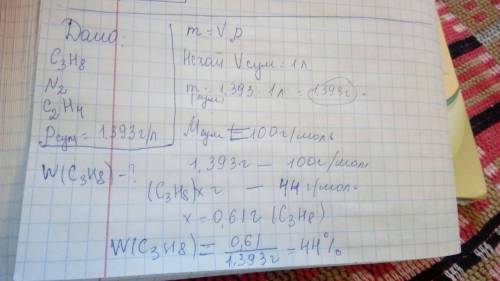 Дано:
C₃H₈
N₂
C₂H₄
ρсум = 1,393 г/л
W(C₃H₈) - ?
m = V·ρ
Нехай Vсум = 1 л
mсум = 1,393 · 1 л = 1,393 г
Mсум = 100 г/моль
1,393 г — 100 г/моль
(C₃H₈) x г — 44 г/моль
x = 0,612 (C₃H₈)
W(C₃H8) = 0,61 / 1,393 г = 44%